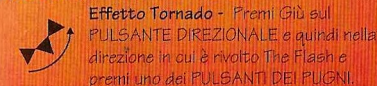 Effetto Tornado - Premi Giù sul
PULSANTE DIREZIONALE e quindi nella
direzione in cui è rivolto The Flash e
premi uno dei PULSANTI DEI PUGNI.